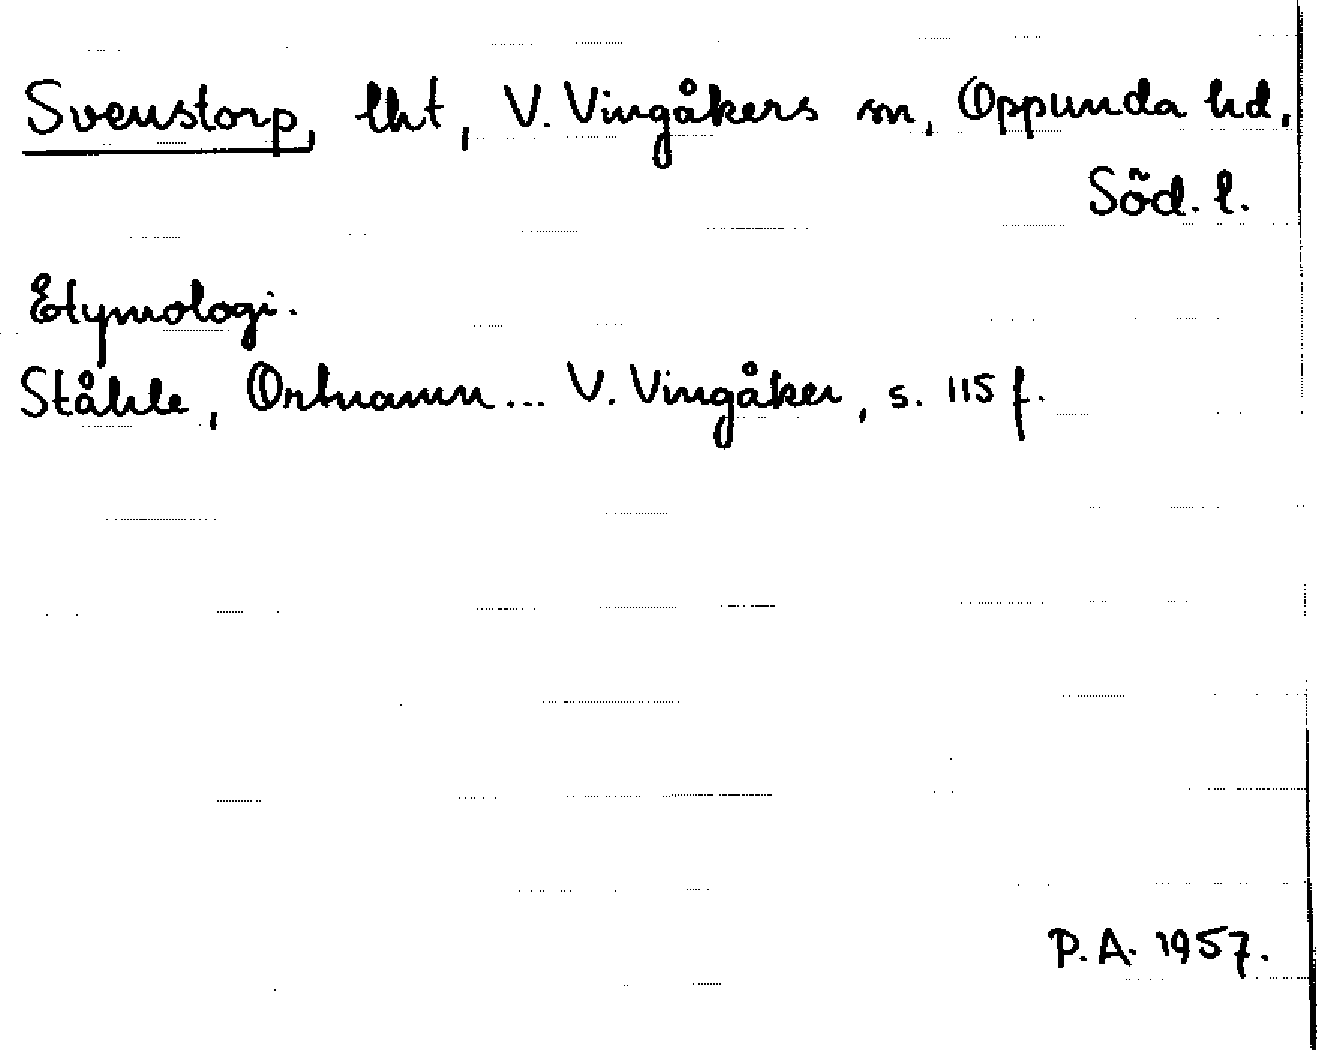 Svenstorp, lht, V. Vingåkers sn, Oppunda hd,
Söd. l.
Etymologi.
Ståhle, Ortnamn... V. Vingåker, s. 115 f.
P.A. 1957.